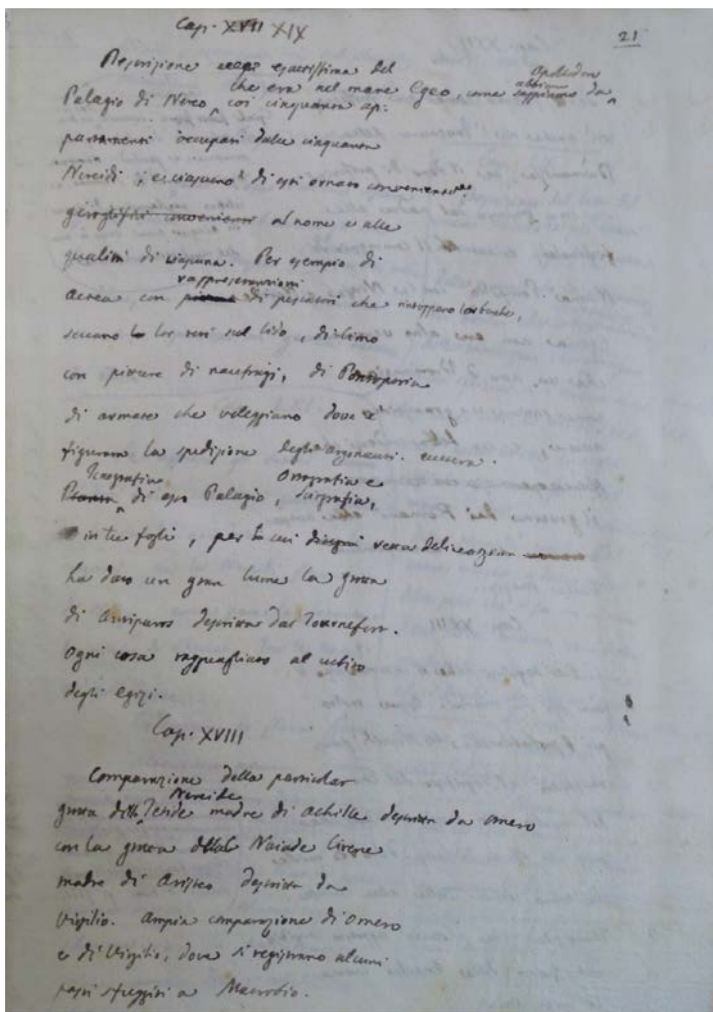 Cap. XVII XIX
21
Descrizione esattissima del
Palagio di Nereo, che era nel mare Egeo, come abbiamo sappiamo da Apollodoro
coi cinquanta ap:
partamenti occupati dalle cinquanta
Nereidi; e ciascuno di essi ornato convenientem.te
geroglifici convenienti al nome e alle
qualità di ciascuna. Per esempio di
rappresentazioni
Actea con pitture di pescatori che
seccano le lor reti sul lido, di Limo
con pitture di naufragi, di Pontoporia
di armate che veleggiano dove è
figurata la spedizione degli Argonauti. eccetera.
Icnografia Ortografia e
Pianta di esso Palagio, Sciografia,
in tre fogli, per la cui disegni vera delineazione
ha dato un gran lume la grotta
di Antiparos descritta dal Tournefort.
Ogni cosa ragguagliato al cubito
degli Egizi.
Cap. XVIII
Comparazione della particolar
Nereide
grotta della Tetide madre di Achille descritta da Omero
con la grotta della Naiade Cirene
madre di Aristeo descritta da
Virgilio. Ampia comparazione di Omero
e di Virgilio, dove si registrano alcuni
passi sfuggiti a Macrobio.